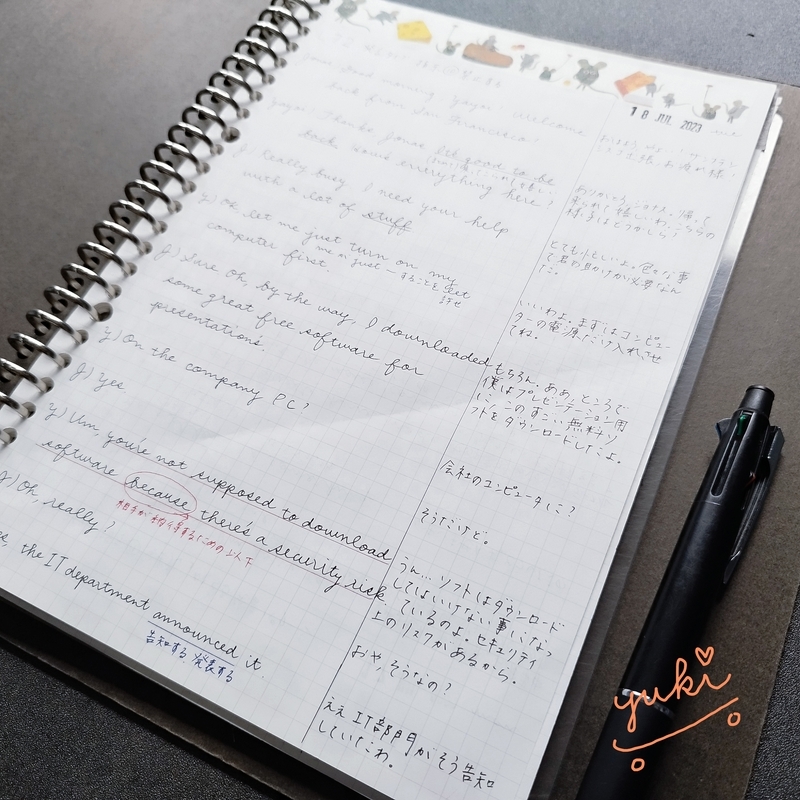 18 JUL 2023
good morning, yaya! welcome
back from San Francisco!
Thanks Jonas. It's good to be
back.
really busy. I need your help
with a lot of stuff
y) Ok let me just turn on my
computer first.
j) Sure oh, by the way, I downloaded
some great free software for
presentations.
y) On the company PC?
j) Yes
y) Um, you're not supposed to download
software because there's a security risk.
j) Oh, really?
the IT department announced it.
告知する、発表する
ありがとう、ジョナス。帰って
とても忙しいよ。色々な事
で君の助けが必要なん
だ。
いいわよ。まずはコンピュー
ターの電源だけ入れさせ
てね。
もちろん。ああ、ところで
僕はプレゼンテーション用
にこのすごい無料ソ
フトをダウンロードしたよ。
会社のコンピュータに?
そうだけど。
うん… ソフトはダウンロード
してはいけない事になっ
ているのよ。セキュリティ
上のリスクがあるから。
おや、そうなの?
ええ IT部門がそう告知
していたわ。
yuki